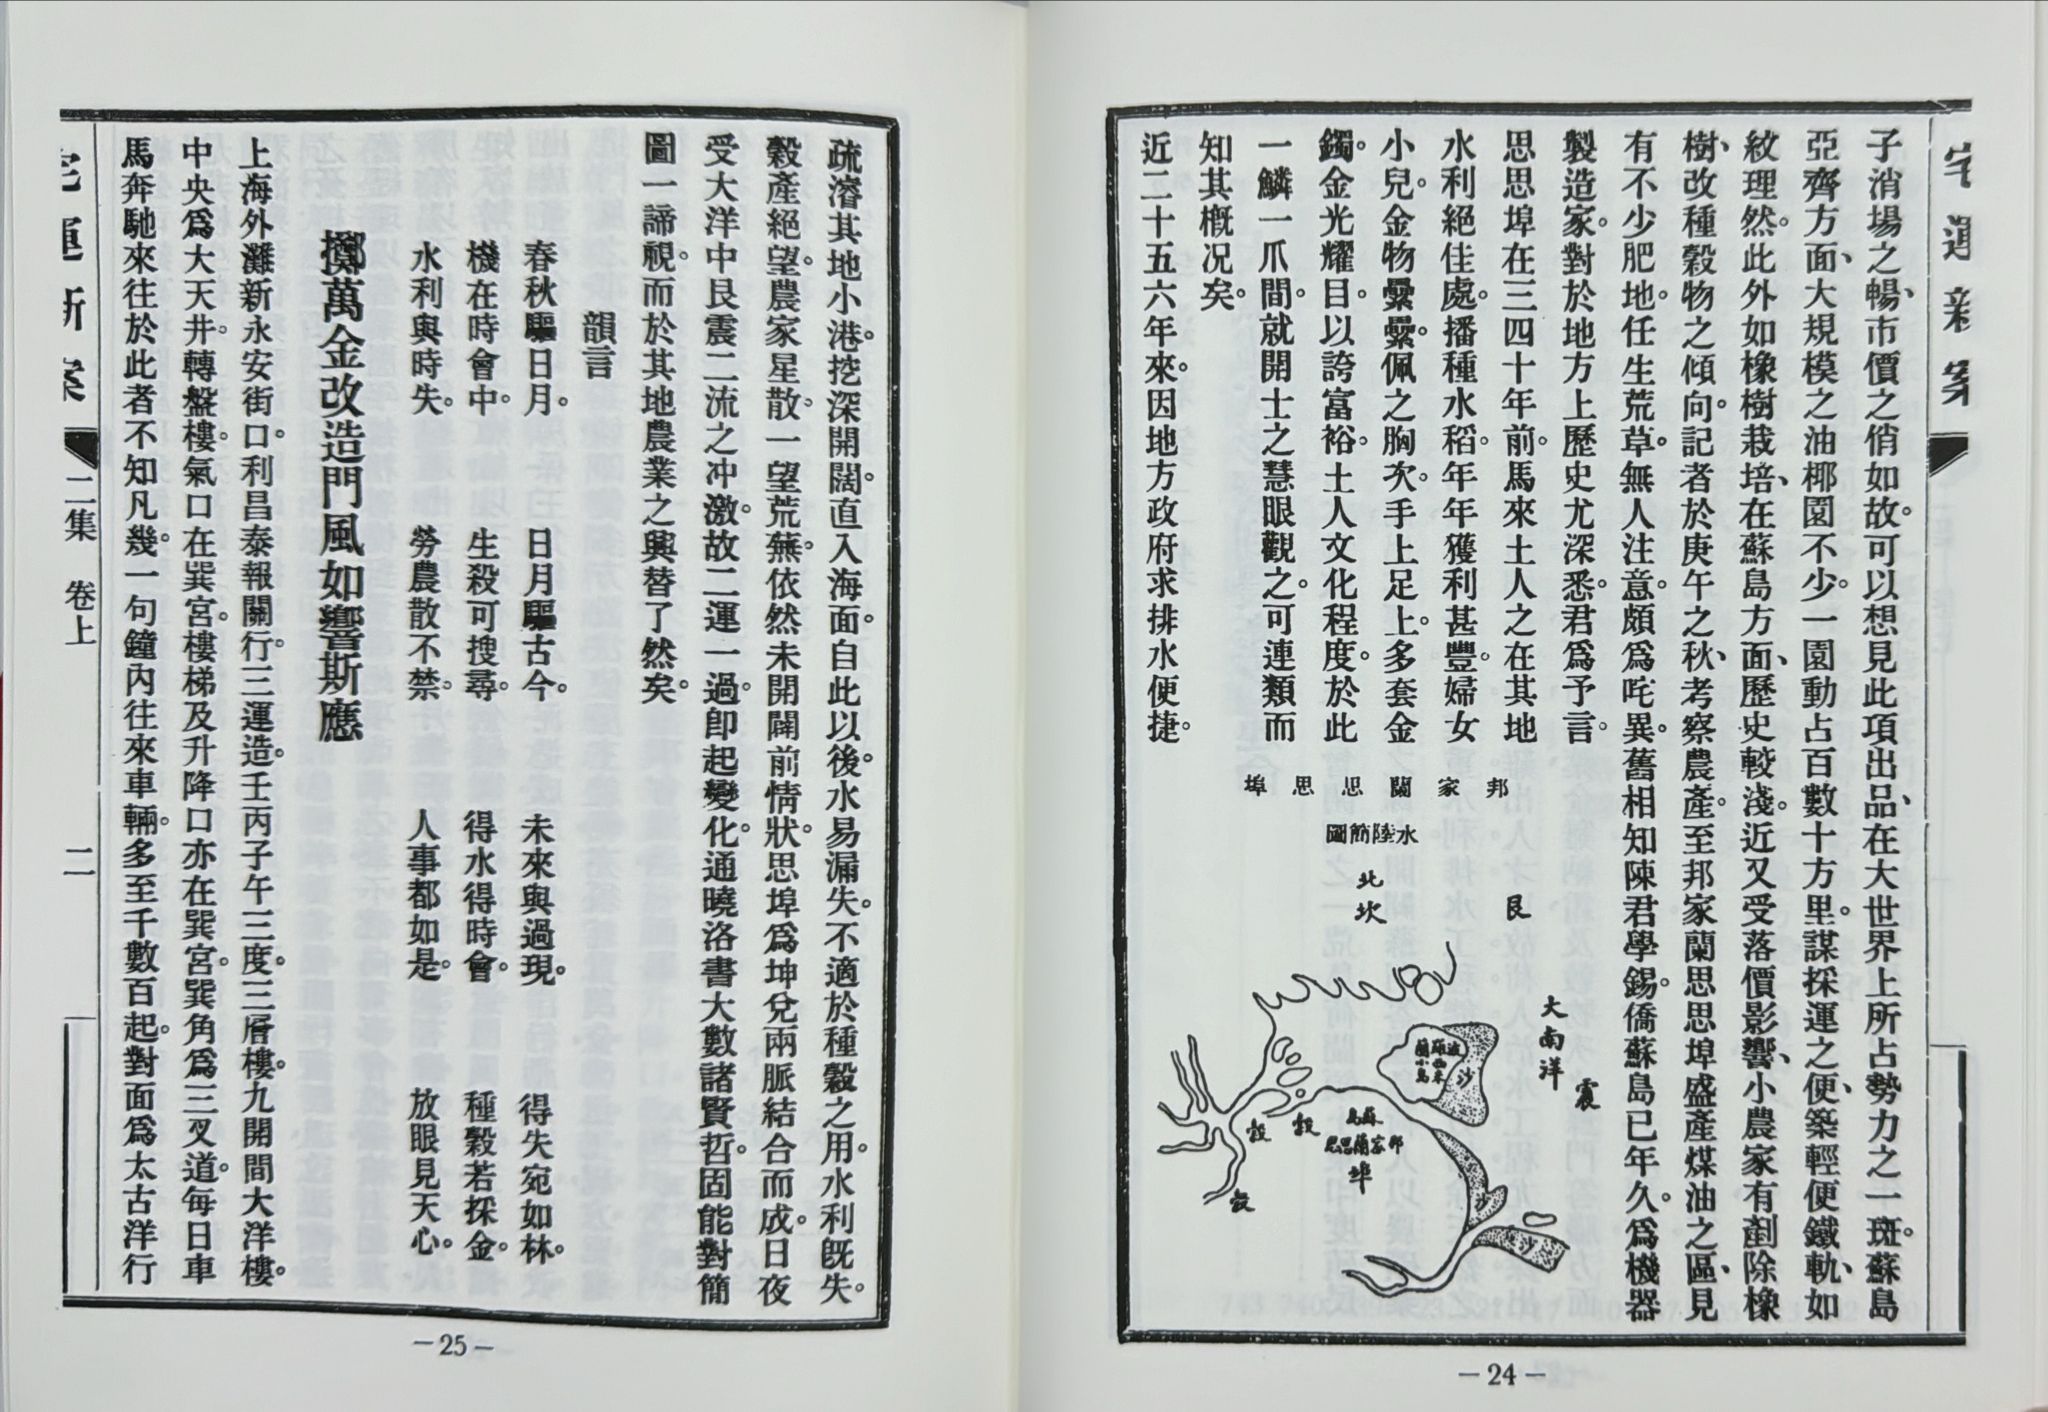 宅運新案
子消場之、暢市價之俏如故。可以想見此項出品、在大世界上所占勢力之一斑。蘇島
亞齊方面、大規模之油椰園不少。一園動占百數十方里。謀採運之便、築輕便鐵軌、如
紋理然。此外如橡樹栽培、在蘇島方面、歷史較淺。近又受落價影響、小農家有剷除橡
樹、改種穀物之傾向。記者於庚午之秋、考察農產。至邦家蘭思思埠盛產煤油之區、見
有不少肥地。任生荒草。無人注意。頗爲咤異。舊相知陳君學錫。僑蘇島已年久。爲機器
製造家。對於地方上歷史尤深悉。君爲予言。
思思埠在三四十年前。馬來土人之在其地
水利絕佳處。播種水稻。年年獲利甚豐。婦女
小兒。金物纍纍。佩之胸次。手上足上。多套金
鐲。金光耀目。以誇富裕。土人文化程度。於此
一鱗一爪間。就開士之慧眼觀之。可連類而
知其槪况矣。
近二十五六年來。因地方政府求排水便捷。
邦家蘭思思埠
水陸簡圖
北
坎
艮
大南洋
震
沙
蘇島
邦家蘭思思
埠
穀
穀
穀
沙
沙
—24—
疏濬其地小港。挖深開闊。直入海面。自此以後。水易漏失。不適於種穀之用。水利旣失。
穀產絕望。農家星散。一望荒蕪。依然未開闢前情狀。思埠爲坤兌兩脈結合而成。日夜
受大洋中艮震二流之冲激。故二運一過。卽起變化。通曉洛書大數諸賢哲。固能對簡
圖一諦視。而於其地農業之興替了然矣。
韻言
春秋驅日月。日月驅古今。未來與過現。得失宛如林。
機在時會中。生殺可搜尋。得水得時會。種穀若採金。
水利與時失。勞農散不禁。人事都如是。放眼見天心。
擲萬金改造門風如響斯應
上海外灘新永安街口。利昌泰報關行。三運造。壬丙子午三度。三層樓。九開間大洋樓。
中央爲大天井。轉盤樓。氣口在巽宮。樓梯及升降口亦在巽宮。巽角爲三叉道。每日車
馬奔馳來往於此者不知凡幾。一句鐘內往來車輛。多至千數百起。對面爲太古洋行
宅運新案
二集 卷上
二
—25—